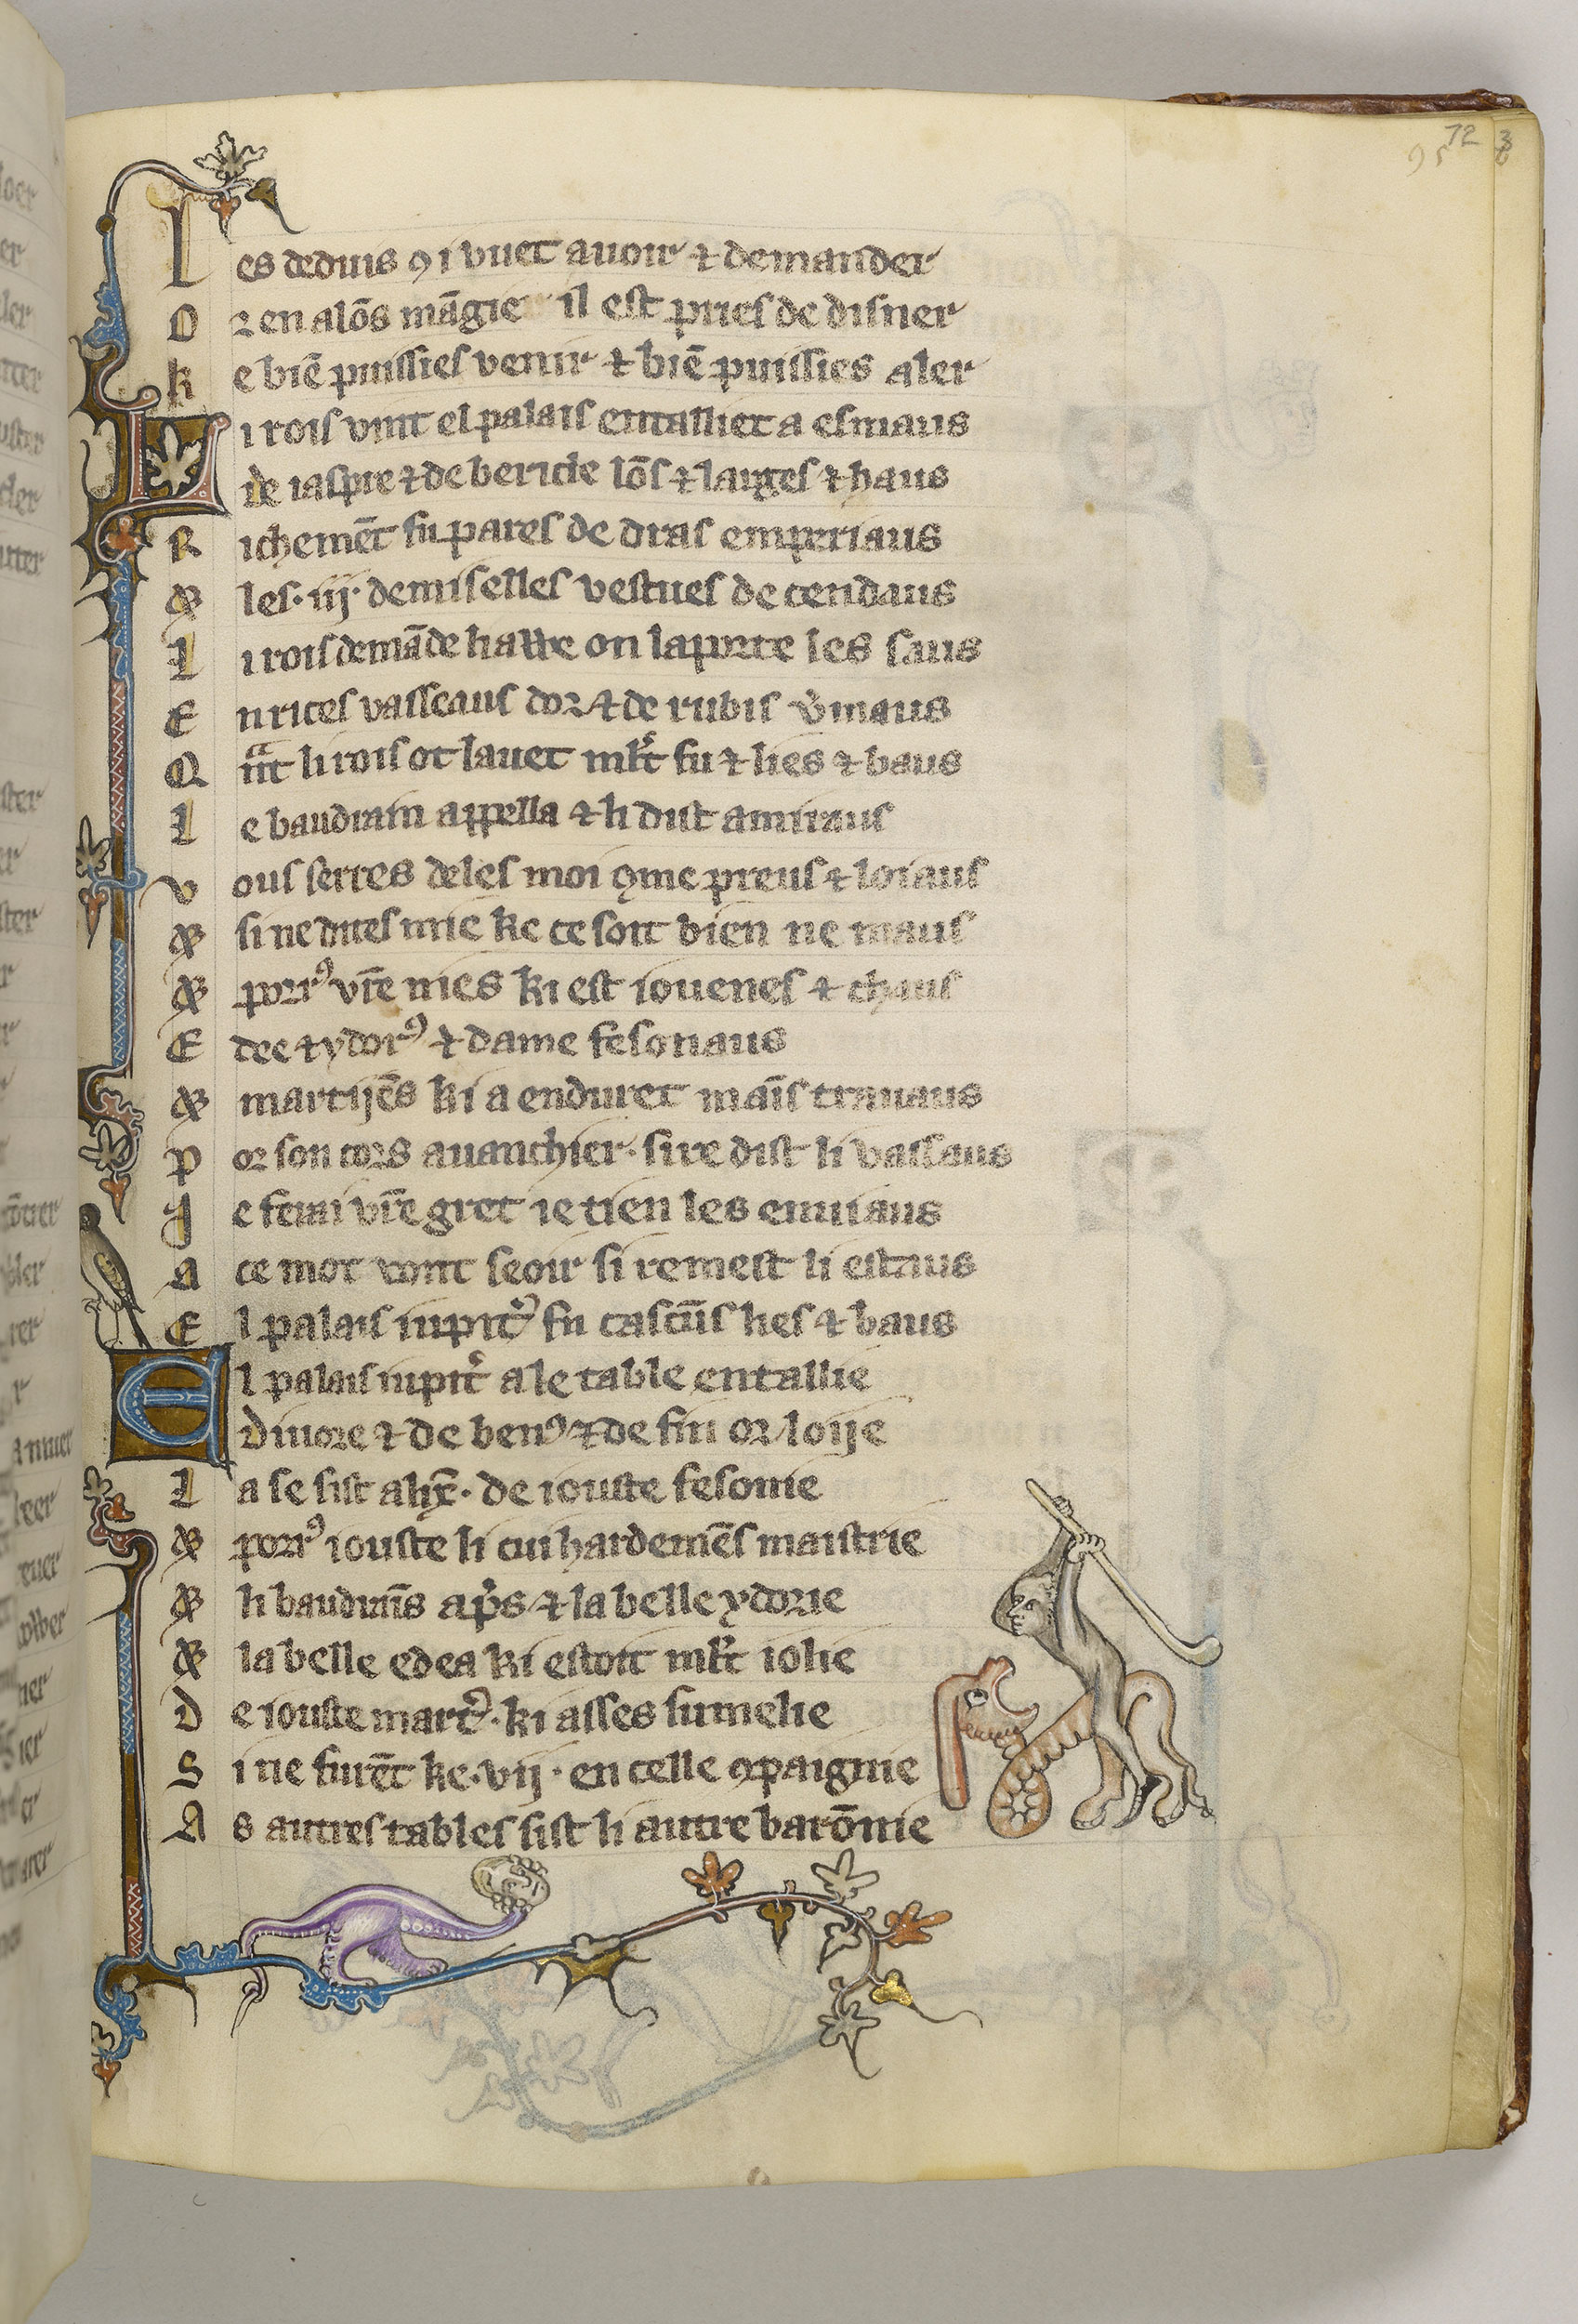 72
95
Les deduis ꝯ i vuet auoir ⁊ demander
Oꝛ en alōs māgie il est pries de disner
Ke biē puissies venir ⁊ biē puissies aler
Li rois vint el palais entalliet a esmaus
de iaspre ⁊ de bericle lōs ⁊ larges ⁊ haus
Richemēt fu pares de dras emperiaus
⁊ les .iij. demiselles vestues de cendaus
Li rois demāde liawe on laporte les saus
En rices vasseaus dor ⁊ de rubis v̓maus
Qᵃnt li rois ot lauet ml̓t fu ⁊ lies ⁊ baus
Le baudrain appella ⁊ li dist amiraus
Vous serres deles moi ꝯme preus ⁊ loiaus
⁊ si ne dites mie ke ce soit bien ne maus
⁊ porꝰ vr̄e nies ki est iouenes ⁊ chaus
Edee ⁊ ydorꝰ ⁊ dame fesonaus
⁊ martijēs ki a enduret mais trauaus
Por son cors auanchier. sire dist li vassaus
Je ferai vr̄e gret ie tien les enuiaus
A ce mot vont seoir si remest li estaus
El palais iupit̓ fu cascūs lies ⁊ baus
El palais iupit̓ a le table entallie
Diuore ⁊ de benꝰ ⁊ de fin or loije
La se sist alix̄. de iouste fesonie
⁊ porꝰ iouste li cui hardemēs maistrie
⁊ li baudraīs ap̓s ⁊ la belle ydorie
⁊ la belle edea ki estoit ml̓t iolie
De iouste mart̓. ki asses sumelie
Si ne furēt ke .vij. en celle ꝯpaignie
As autres tables sist li autre barōnie